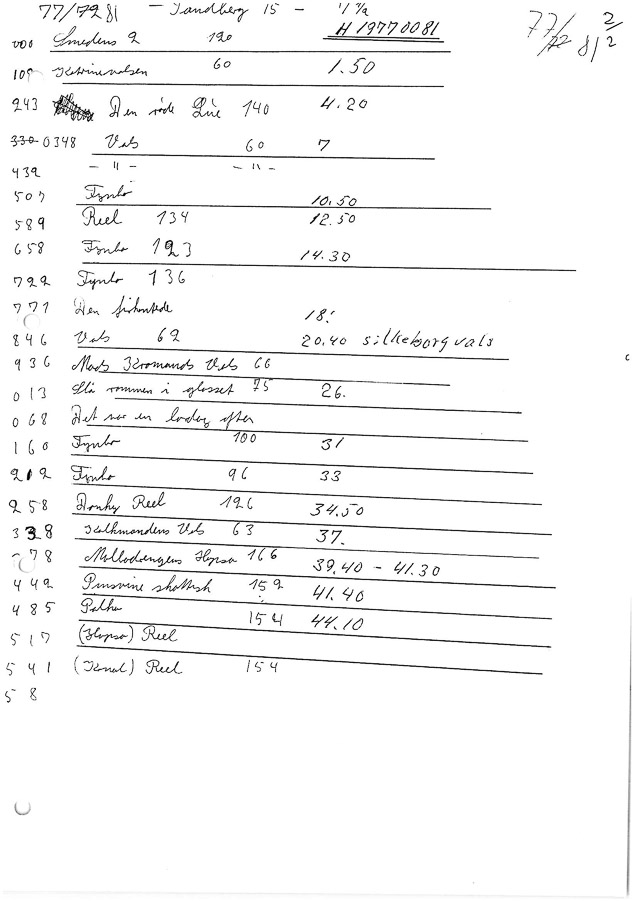 77/7281 - Tandberg 15 -
H 19770081
77/72 81 2/2
000 Smedens 2 120
109 Katrinevalsen 60 1.50
243 Den røde Lue 140 4.20
330 0348 Vals 60 7
439 - " - - " -
507 Fynbo 10.50
589 Reel 134 12.50
658 Fynbo 123 14.30
722 Fynbo 136
771 Den firkantede 18:
846 Vals 62 20.40 silkeborgvals
936 Mads Kromands Vals 66
013 Slå rommen i glasset 75 26.
068 Det var en lørdag aften
160 Fynbo 100 31
212 Fynbo 96 33
258 Donky Reel 126 34.50
328 Kalkmandens Vals 63 37.
378 Mølledrengens Hopsa 166 39.40 - 41.30
442 Pinsvine shottish 152 41.40
485 Polka 154 44.10
517 (Hopsa) Reel
541 (Knal) Reel 154
58